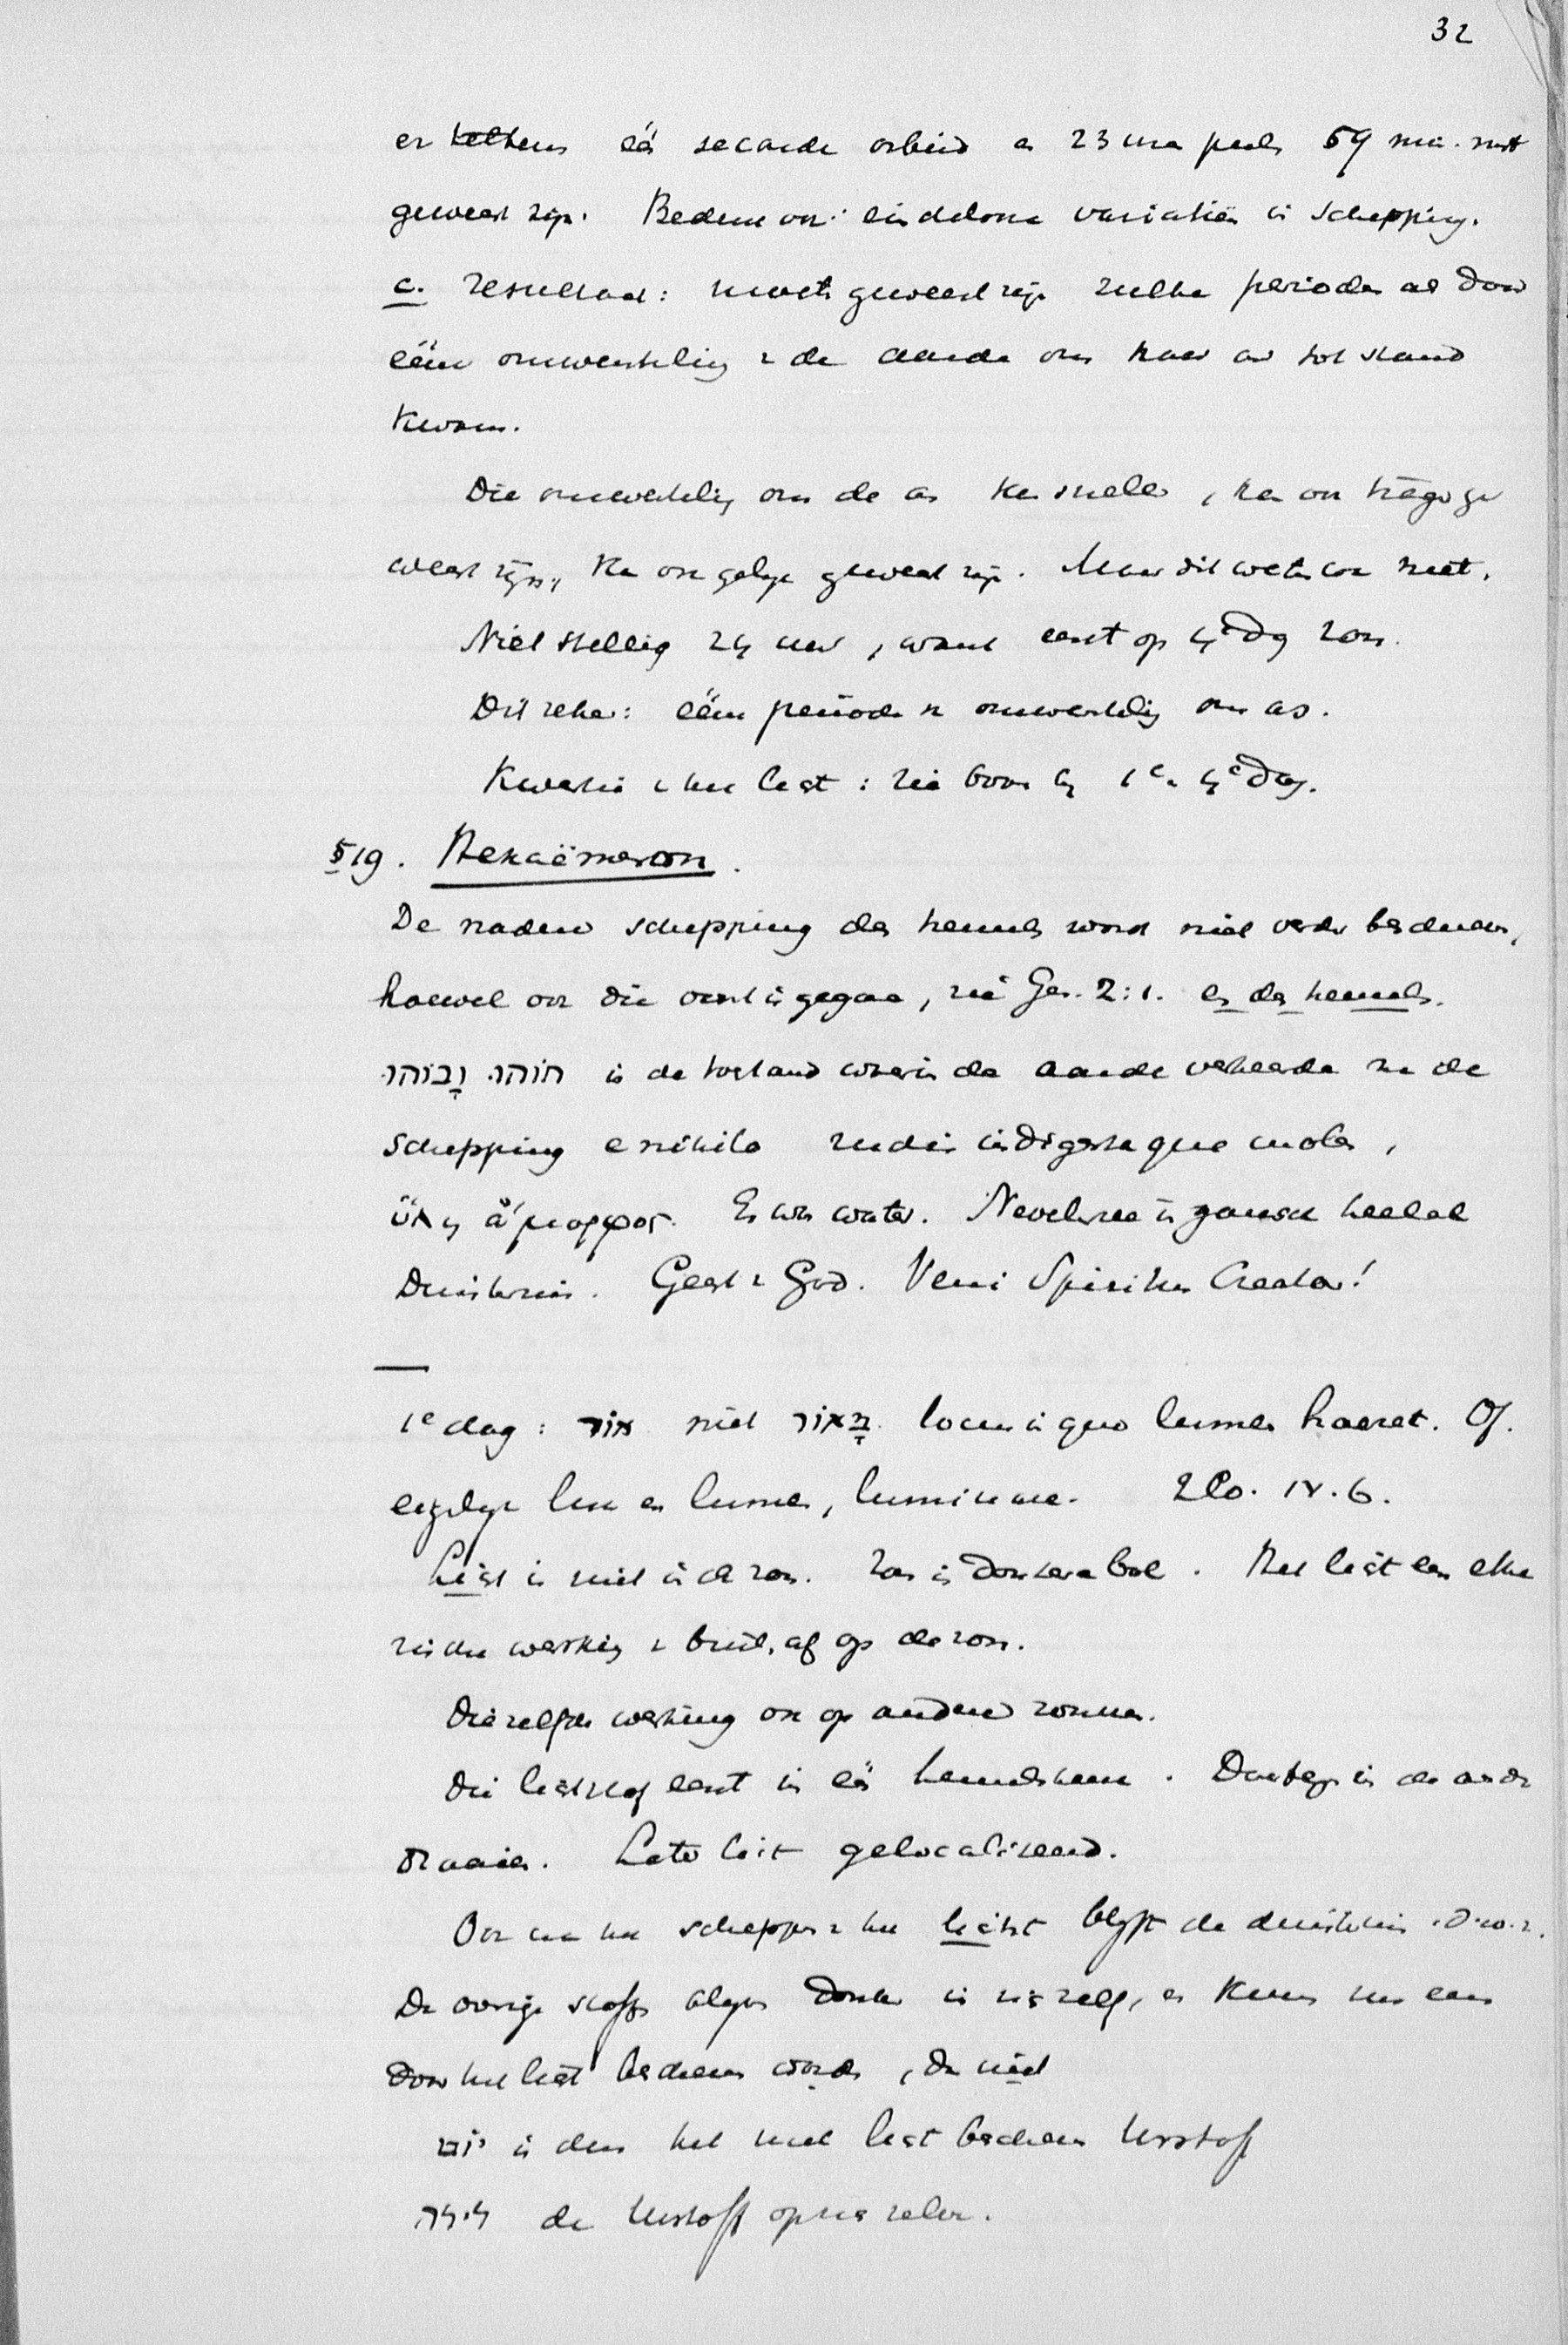 32
er telkens één seconde arbeid en 23 uren 59 min. rust
geweest zijn. Bedenk ook: eindeloze variatiën in schepping.
c. resultaat: moet geweest zijn zulke perioden als door
ééne omwenteling v de aarde om haar as tot stand
kwam.
Die omwenteling om de as kan sneller, kan ook trager ge
weest zijn, kan ongelijk geweest zijn. Maar dit weten we niet.
Niet stellig 24 uur, want eerst op 4e dg zon.
Dit zeker: ééne periode v omwentelig om as.
Kwestie v het licht: zie boven bij 1e en 4e dag.
§19. Hexaëmeron.
De nadere schepping des hemels wordt niet verder beschreven,
hoewel ook die voort is gegaan, zie Gen. 2:1. en de hemels.
תוהו וָבוהו is de toestand waarin de aarde verkeerde na de
schepping e nihilo rudis indigestaque moles,
ὕλη ἄμορφος. Er was water. Nevelzee in gansche heelal
Duisternis. Geest v God. Veni Spiritus Creator!
1e dag: אור niet מָאור locus in quo lumen haeret. Of.
eigelijk lux en lumen, luminare. 2 Co. IV. 6.
Licht is niet in de zon. Zon is donkere bol. Het licht een elke
zijn werking v buiten af op de zon.
Diezelfde werking ook op andere zonnen.
Die lichtstof eerst in één hemelstreek. Daartegen in de aarde
draaien. Later licht gelocaliseerd.
Ook na het scheppen v het licht blijft de duisternis. d.w.z.
De overige stoffen blijven donker in zichzelf, en kunnen nu eens
door het licht beschenen worden, dan niet
יום is dus het met licht beschenen Urstoff
לילה de Urstoff op zich zelve.